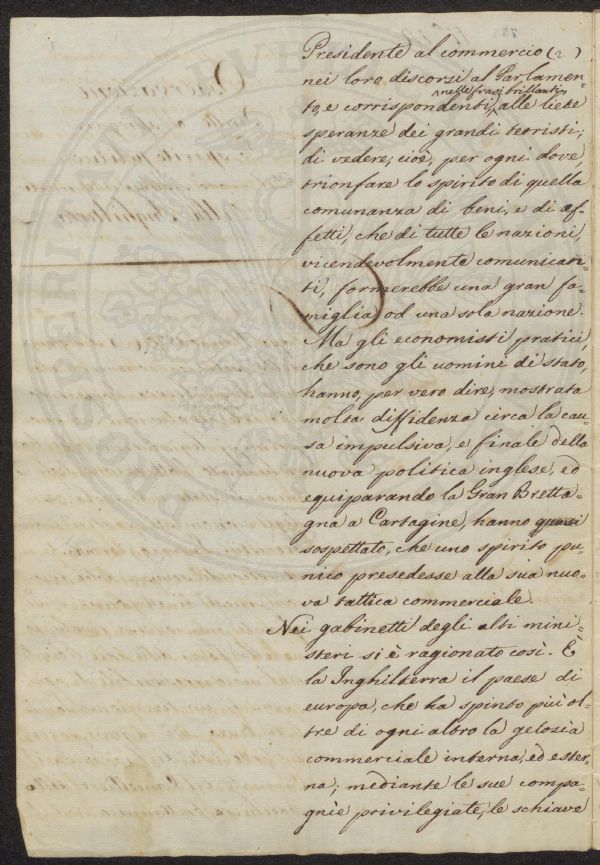 Presidente al commercio (2)
nei loro discorsi al Parlamen-
to, e corrispondenti, nelle frasi brillanti, alle liete
speranze dei grandi teoristi;
di vedere, cioè, per ogni dove,
trionfare lo spirito di quella
comunanza di beni, e di af-
fetti, che di tutte le nazioni,
vicendevolmente comunican-
ti, formerebbe una gran fa-
miglia od una sola nazione.
Ma gli economisti pratici,
che sono gli uomini di stato,
hanno, per vero dire, mostrata
molta diffidenza circa la cau-
sa impulsiva, e finale della
nuova politica inglese, ed
equiparando la Gran Bretta-
gna a Cartagine, hanno quasi
sospettato, che uno spirito pu-
nico presedesse alla sua nuo-
va tattica commerciale.
Nei gabinetti degli alti mini-
steri si è ragionato così. È
la Inghilterra il paese di
europa, che ha spinto più ol-
tre di ogni altro la gelosia
commerciale interna, ed ester-
na, mediante le sue compa-
gnie privilegiate, le schiave